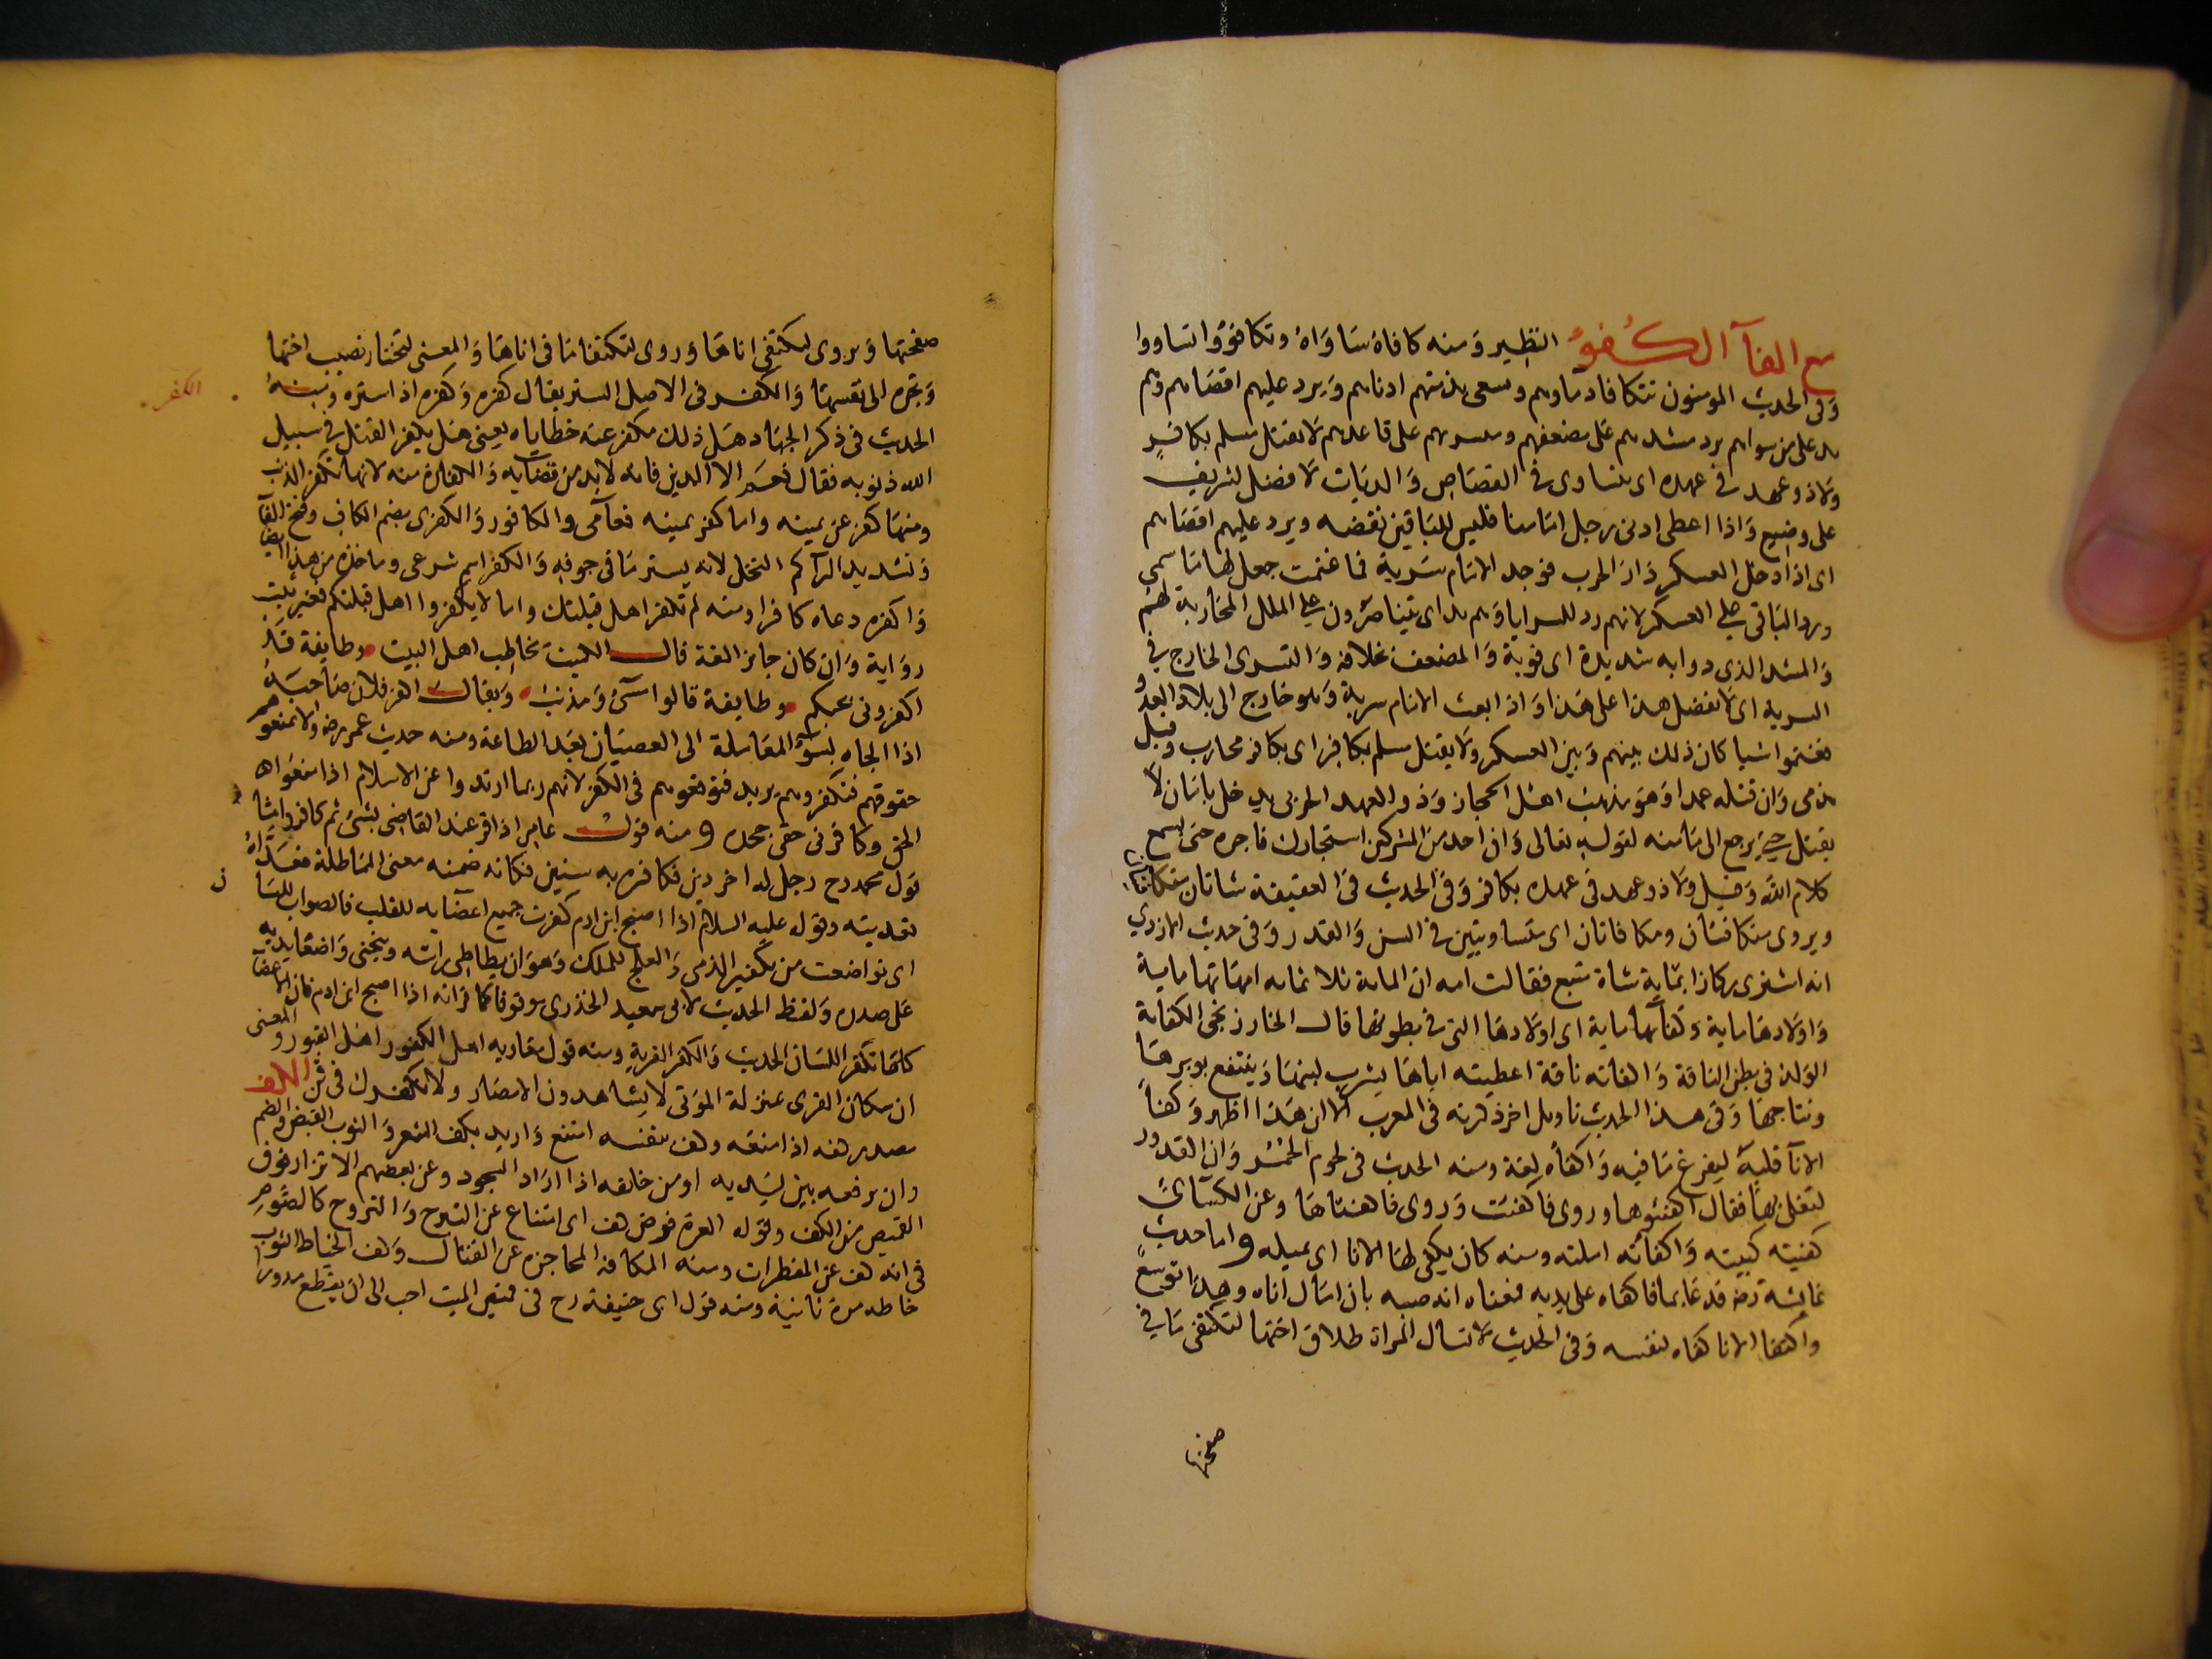 مع الفآ الكُفوءُ النظير وَمنه كافاهُ سَاوَاهُ وتكافؤُوا تساووا
وَفى الحديث المومنون تتكافا دماوهم ويسعى بذمتهم ادناهم وَيرد عليهم اقصَاهم وَهم
يد على من سواهم يرد مشدهم على مضعفهم ومتسريهم على قاعدهم لَا يقتل مسلم بكافرٍ
ولَا ذو عهد في عهده اى يتساوى فى القصَاص وَالديَات لَا فضل لشريف
على وضيع وَاذا اعطى ادنى رجل امَاننا فليس للبَاقين نقضه ويرد عليهم اقصَاهم
اى اذا دخل العسكر دَارَ الحرب فوجد الامَام سَرية فما غنمت جعل لهَا مَا سمى
ورد البَاقى على العسكر لانهم رد للسرايا وَهم يد اى يتنَاصَرُون على الملل المحَاربة لهَم
وَالمشد الذى دوابه شديدة اى قوية وَالمضعف بخلافه وَالمتسرى الخارج في
السرية اى لَا يفضل هذا على هَذا وَاذا بعث الامَام سرية وَهو خارج الى بلاد العدو
فغنموا اشيا كان ذلك بينهم وَبين العسكر ولَا يقتل مسلم بكافر اى بكافر محارب وقيل
بذمى وَان قتله عمدا وَهوَ مذهبُ اهلَ الحجاز وَذو العهد الحربى يدخل بامَان لَا
يقتل حتى يرجع الى مَامنه لقوله تعالى وَان احد مّن المشركين استجارك فاجره حتى يسمع
كلام الله وَقيل ولَا ذو عهد فى عهده بكافر وَفى الحديث فى العقيقة شاتان متكافئتان
ويروى متكافئتان ومكافاتان اى متسَاويتين فى السن وَالقدر وَفى حديث الازدي
انه اشترى ركازا بمايةِ شاة متبع فقالت امه ان الماية ثلاثماية امهَاتها ماية
وَاولَادهَا ماية وَكفأتها ماية اى اولَادهَا التى فى بطونها قال الخارزنجى الكفأة
الوَلد فى بطن الناقة وَالفاته ناقة اعطيته اياهَا يشرب لبنهَا وَينتفع بوبرهَا
ونتاجهَا وَفى هذا الحديث تاويل اخر ذكرته فى المعرب الا ان هَذا اظهر وَكفأ
الانآ قلبهُ ليفرغ مَا فيه وَاكفأه لغة ومنه الحديث فى لحوم الحُمُر وَان القدور
لتغلى بهَا فقال اكفئوها وروى فاكفئت وَروى فاكفئناهَا وعن الكسآئى
كفئته كببته وَاكفأته املته ومنه كان يكفى لهَا الانا اى يميله واما حديث
عَائشة رضه فدعَا بما فاكفاه على يديه فمعناه انه صبه بان امَال اناه وهِذَا توسعٌ
واكتفا الانا كفَاه لنفسه وَفى الحديث لا تسال المراة طلاق اختها لتكتفى مَا في
صحفتها
صفحتها وَيروى لتكتفى اناهَا وَروى لتكتفا مَا فى اناهَا وَالمعنى لتختار نصيب اختها
وَتجره الى نفسهَا وَالكفر فى الاصل الستر يقال كفره وَكفره اذا ستره ومنه
الكفر
الحديث فى ذكر الجهَاد هَل ذلك مكفر عنه خطاياه يعنى هَل يكفر القتل فى سبيل
الله ذنوبه فقال نعَم الا الدين فانه لَا بد من قضَايه وَالكفارة منه لانها تكفر الذنب
ومنهَا كفر عن يمينه واما كفر يمينه فعآمى والكافور وَالكفرى بضم الكاف وفتح الفآ
وَتشديد الرآ كم النخل لانه يستر مَا فى جوفه وَالكفر اسم شرعى وماخذه من هذا ايضا
وَاكفره دعاه كافرا ومنه لم تكفر اهل قبلتك واما لا يكفروا اهل قبلتكم فغير ثبت
روَاية وَان كان جايز الغة قال الكميت يخاطِب اهل البيت وطايفة قَد
اكفرونى بحبكم وطايفة قالوا مسَىٌ وَمذنبُ وَيقال اكفر فلَان صَاحبَهُ
اذا الجاه بسُؤ المعَاملة الى العصيَان بعَد الطاعة ومنه حديث عمر رضه ولا تمنعوهم
حقوقهم فتكفروهم يريد فتوقعوهم فى الكفر لانهم ربما ارتدوا عن الاسلام اذا منعَواهم
الحق وكافرنى حقى جحده ومنه قول عامر اذا اقر عند القاضى بشى ثم كافر وامَّا
قول محمد رح رجل له اخر دين فكافره به سنين فكانه ضمنه معنى المَاطلة فعَدَاهُ
تعديته وقوله عليه السلام اذا اصبح ابن ادم كفرت جميع اعضآيه للقلب فالصواب للسَان
اى تواضعت من تكفير الذمى وَالعلج للملك وَهوَ ان يطاطِى راسَه وينحنى وَاضعَا يديه
عَلى صدره وَلفظ الحديث لابى سعيد الخدرى موقوفا كما قرانه اذا اصبح ابن ادم فان الاعضآ
كلهَا تكفر اللسَان الحديث وَالكفر القرية ومنه قول معَاوية اهل الكفور اهَل القبور وَالمعنى
ان سكان القرى بمنزلة الموَتى لا يشَاهدون الامصَار ولَا الكفرك فى فن الكف
مصدر كفه اذا منعَه وكف بنفسه امتنع وَاريد بكف الشعر وَالثوب القبض والضم
وان يرفعه بين يَديه او من خلفه اذا ارَاد السجود وعن بعضهم الاتزار فوق
القميص من الكف وقوله العزم فرض كف اى امتناع عن السرح وَالتروح كالصَوم
فى انه كف عن المفطرات ومنه المكافه المحاجزه عن القتال وَكف الخيَاط الثوب
خاطه مرة ثانية ومنه قول ابى حنيفة رح فى قميص الميت احب الى ان يقطع مدورا